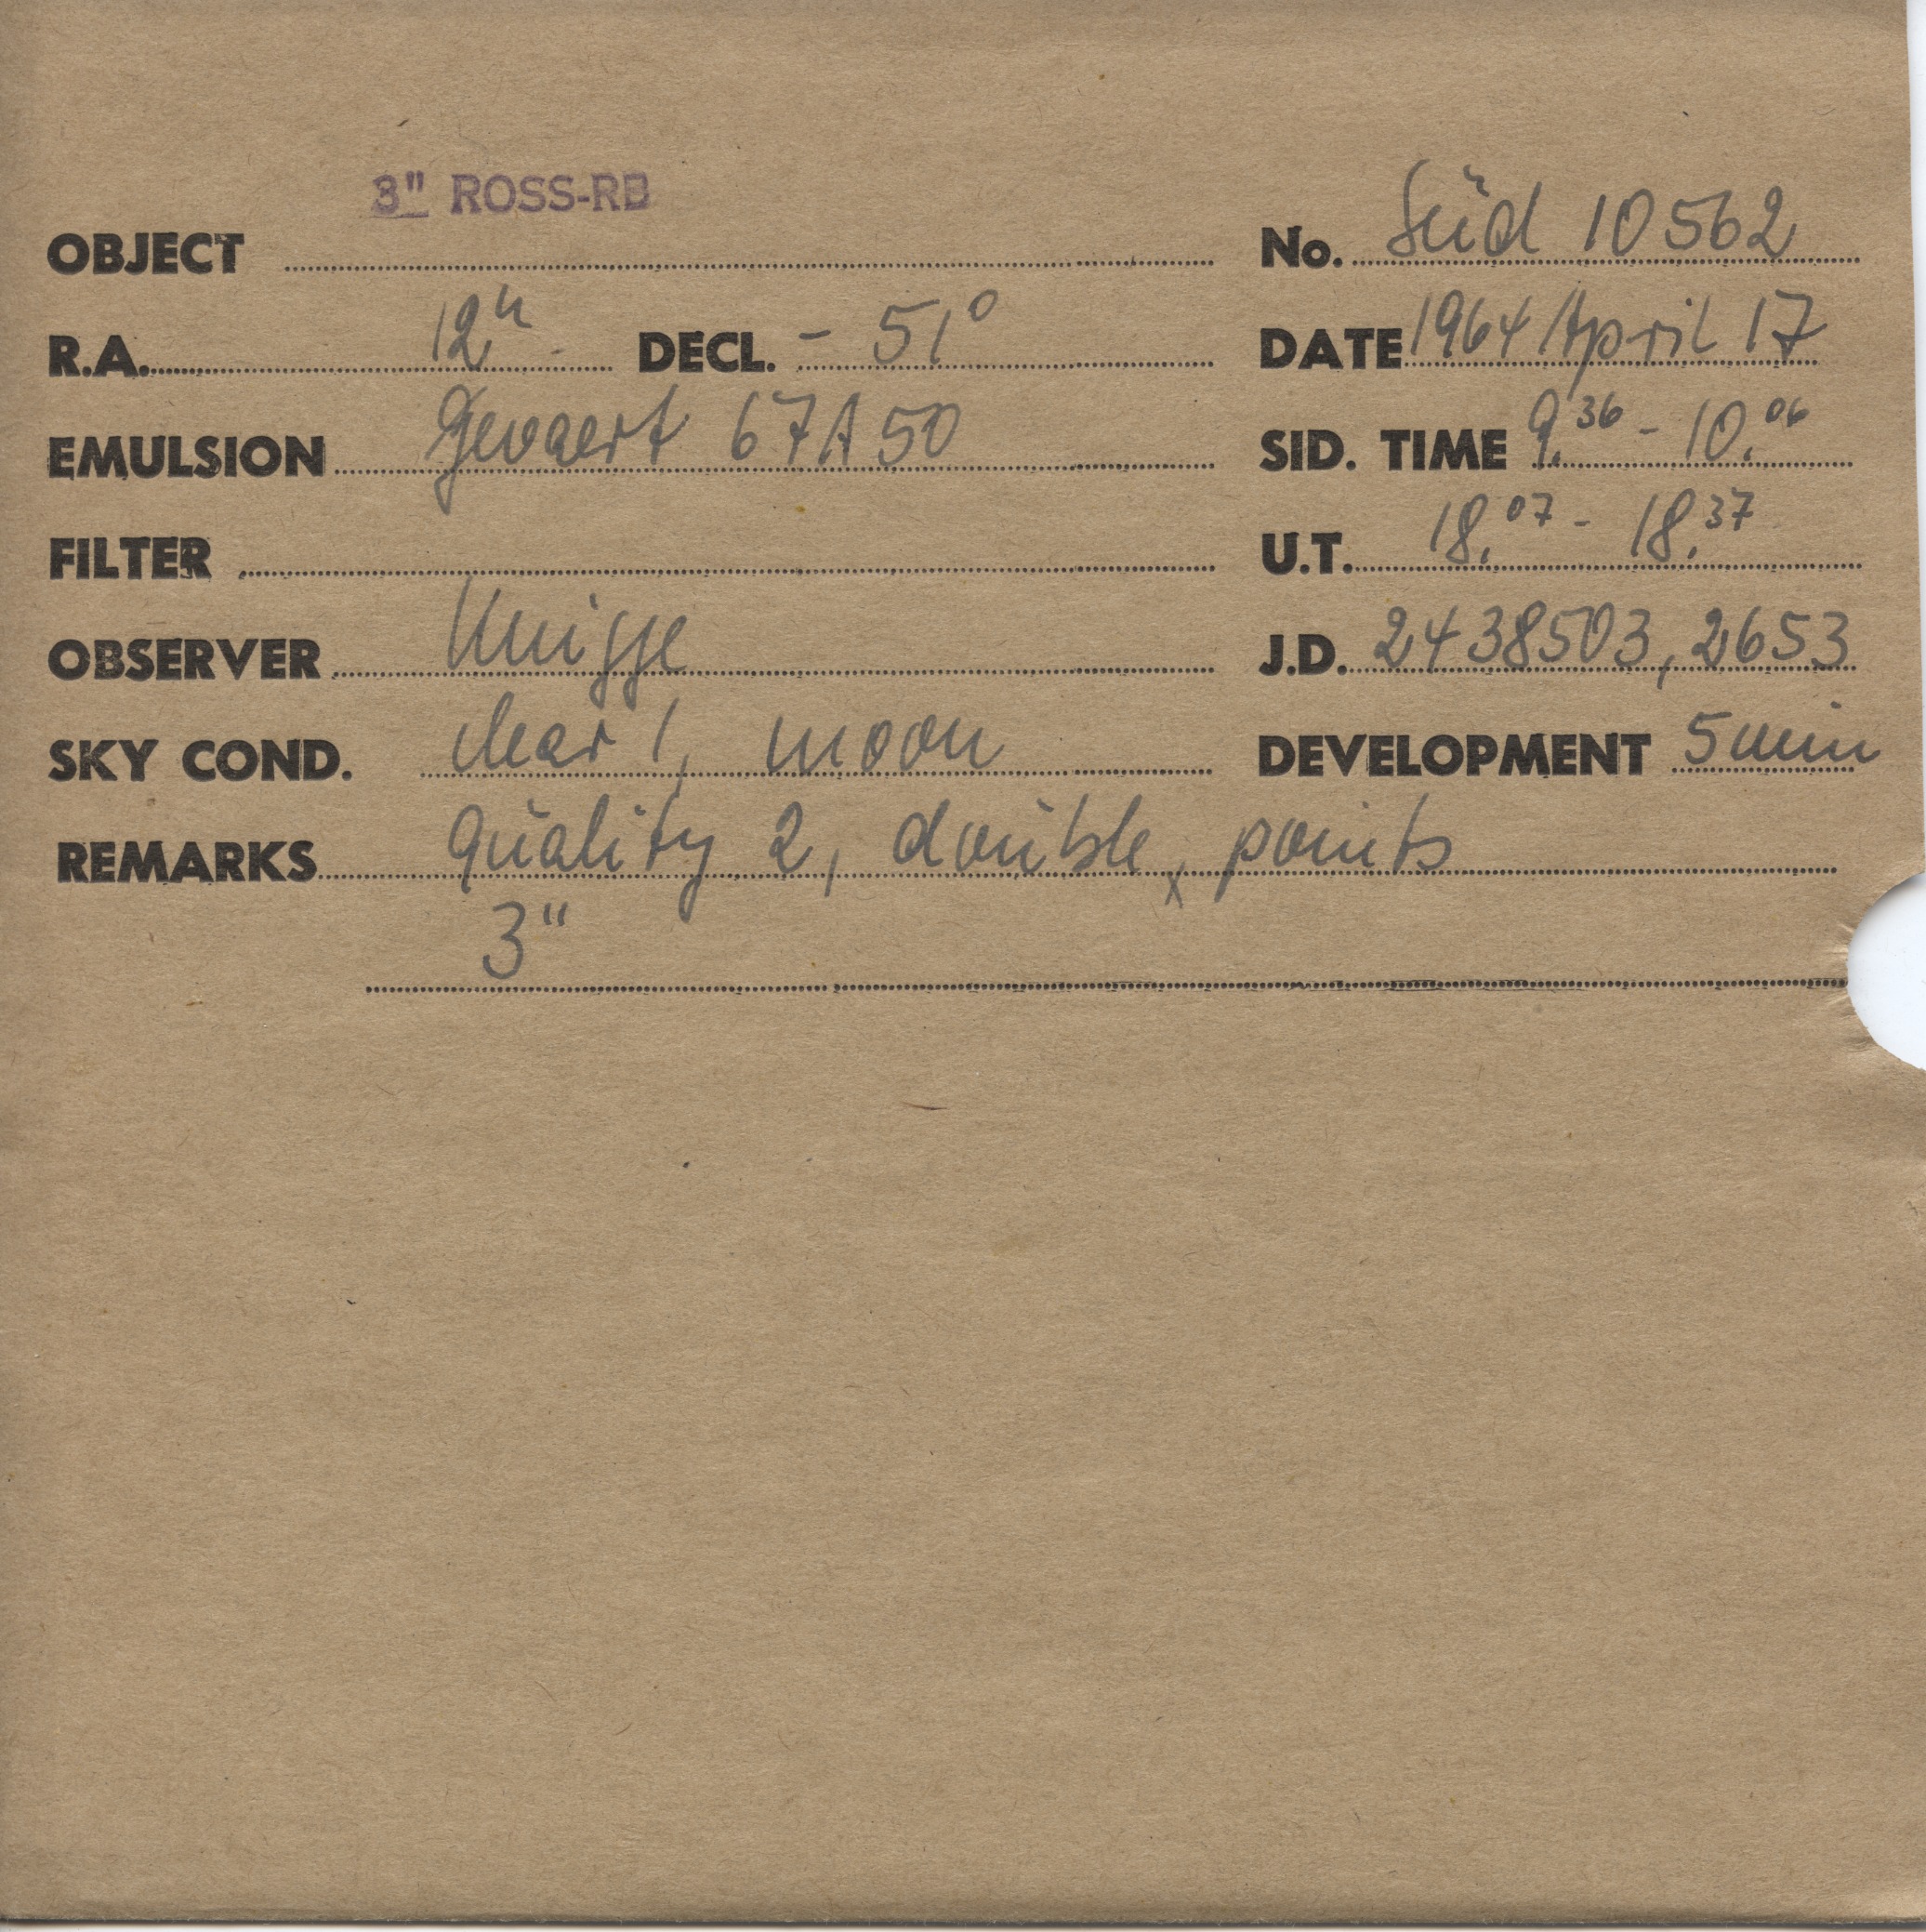 3" ROSS-RB
OBJECT No. Süd 10562
R.A. 12h DECL. - 51° DATE 1964 April 17
EMULSION Gevaert 67A50 SID. TIME 9.36 - 10.06
FILTER U.T. 18.07 - 18.37
OBSERVER Knigge J.D. 2438503,2653
SKY COND. clear 1, moon DEVELOPMENT 5 min
REMARKS quality 2, double x points
3"